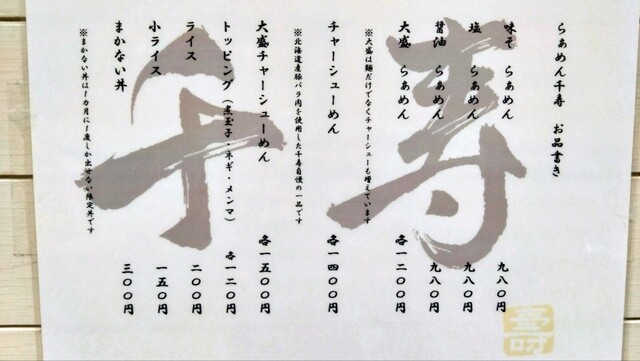 らぁめん千寿 お品書き
味そ らぁめん 九八〇円
塩 らぁめん 九八〇円
醤油 らぁめん 九八〇円
大盛 らぁめん 各一二〇〇円
※大盛は麺だけでなくチャーシューも増えています
チャーシューめん 各一四〇〇円
※北海道産豚バラ肉を使用した千寿自慢の一品です
大盛チャーシューめん 各一五〇〇円
トッピング(煮玉子・ネギ・メンマ) 各一二〇円
ライス 二〇〇円
小ライス 一五〇円
まかない丼 三〇〇円
※まかない丼は1カ月に1度しか出せない限定丼です
寿
千